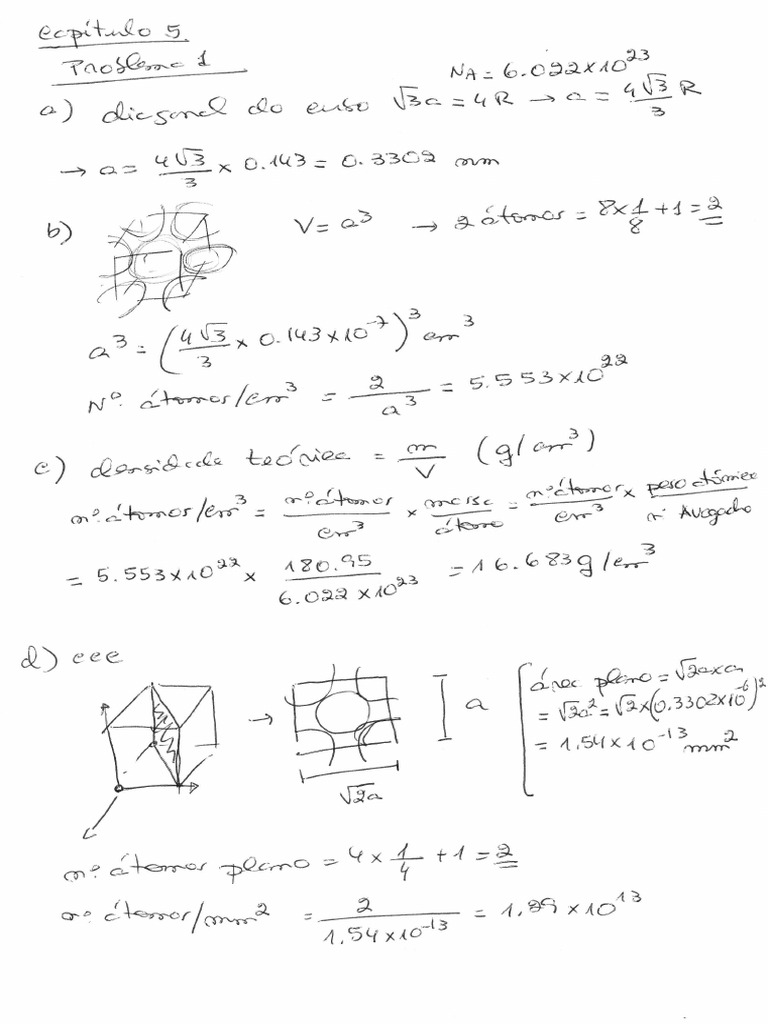 Capítulo 5
Problema 1
NA = 6.022 x 10^23
a) diagonal do cubo √3a = 4R → a = 4√3/3 R
→ a = 4√3/3 x 0.143 = 0.3302 nm
b) V = a^3 → 2 átomos = 8x1/8 + 1 = 2
a^3 = (4√3/3 x 0.143x10^-7)^3 cm^3
Nº. átomos/cm^3 = 2/a^3 = 5.553x10^22
c) densidade teórica = m/V (g/cm^3)
nº. átomos/cm^3 = nº. átomos/cm^3 x massa/átomo = nº. átomos/cm^3 x peso atómico/nº Avogadro
= 5.553x10^22 x 180.95/6.022 x10^23 = 16.683 g/cm^3
d) ccc
a
√2a
área plano = √2axa
= √2a^2 = √2x(0.3302x10^-6)^2
= 1.54x10^-13 mm^2
nº. átomos plano = 4x1/4 + 1 = 2
nº. átomos/mm^2 = 2/1.54x10^-13 = 1.29 x10^13